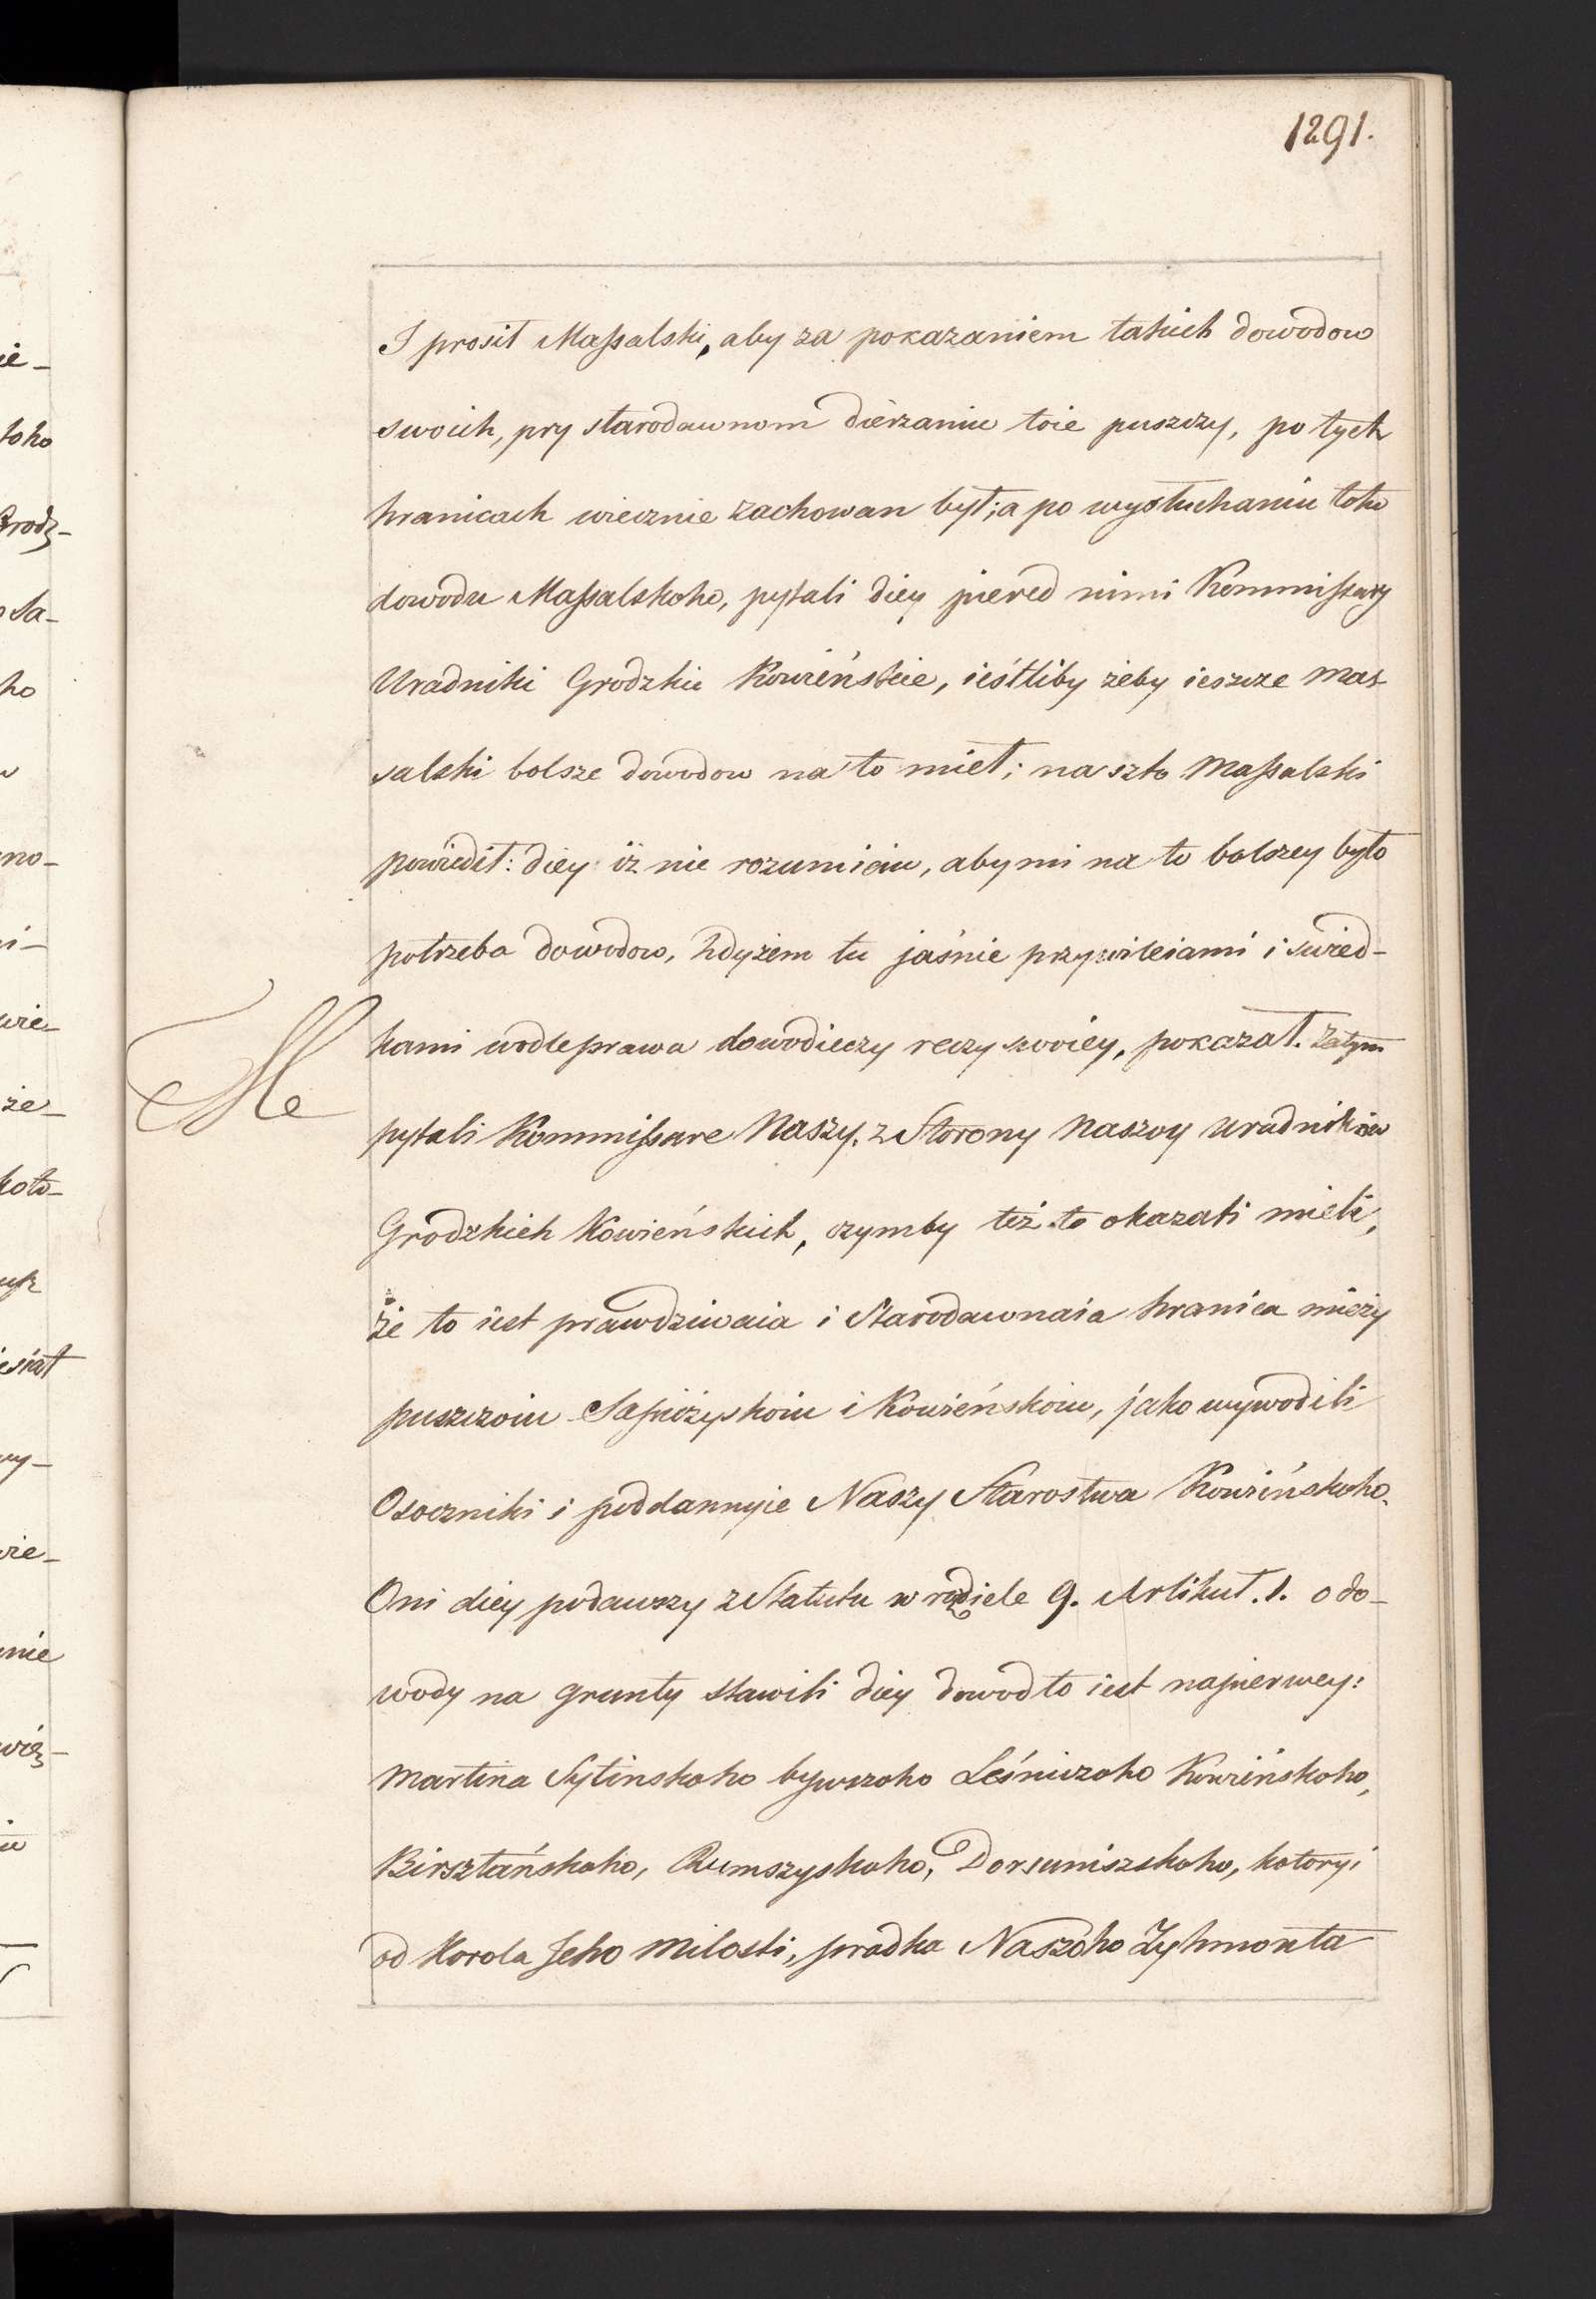 1291.
I prosił Maſsalski, aby za pokazaniem takich dowodow
swoich, pry starodawnom dierżaniu toie puszczy, po tych
hranicach wiecznie zachowan był; a po wysłuchaniu toho
dowodu Maſsalskoho, pytali diey piered nimi Kommiſsary
Uradniki Grodzkie Kowieńskie, ieśtliby żeby ieszcze Mas-
salski bolsze dowodow na to mieł; na szto Maſsalski
powiedił: diey iż nie rozumieiu, aby mi na to bolszey było
potrzeba dowodow, hdyżem tu jaśnie przywileiami i swied-
kami wodle prawa dowodieczy reczy swoiey, pokazał. Zatym
pytali Kommiſsare Naszy. z Storony Naszoy uradników
Grodzkich Kowieńskich, czymby też to okazati mieli,
że to iest prawdziwaia i Starodawnaia hranica mieży
puszczoiu Sapieżyskoiu i Kowieńskoiu, jako wywodili
Osoczniki i poddannyie Naszy Starostwa Kowieńskoho.
Oni diey podawszy z Statutu w rozdiele 9. Artikuł. 1. o do-
wody na grunty stawili diey dowod to iest napierwey:
Martina Sytinskoho bywszoho Leśniczoho Kowieńskoho,
Birsztańskoho, Rumszyskoho, Dorsuniszskoho, kotoryi
od Korola Jeho Milosti, pradka Naszoho Zyhmonta